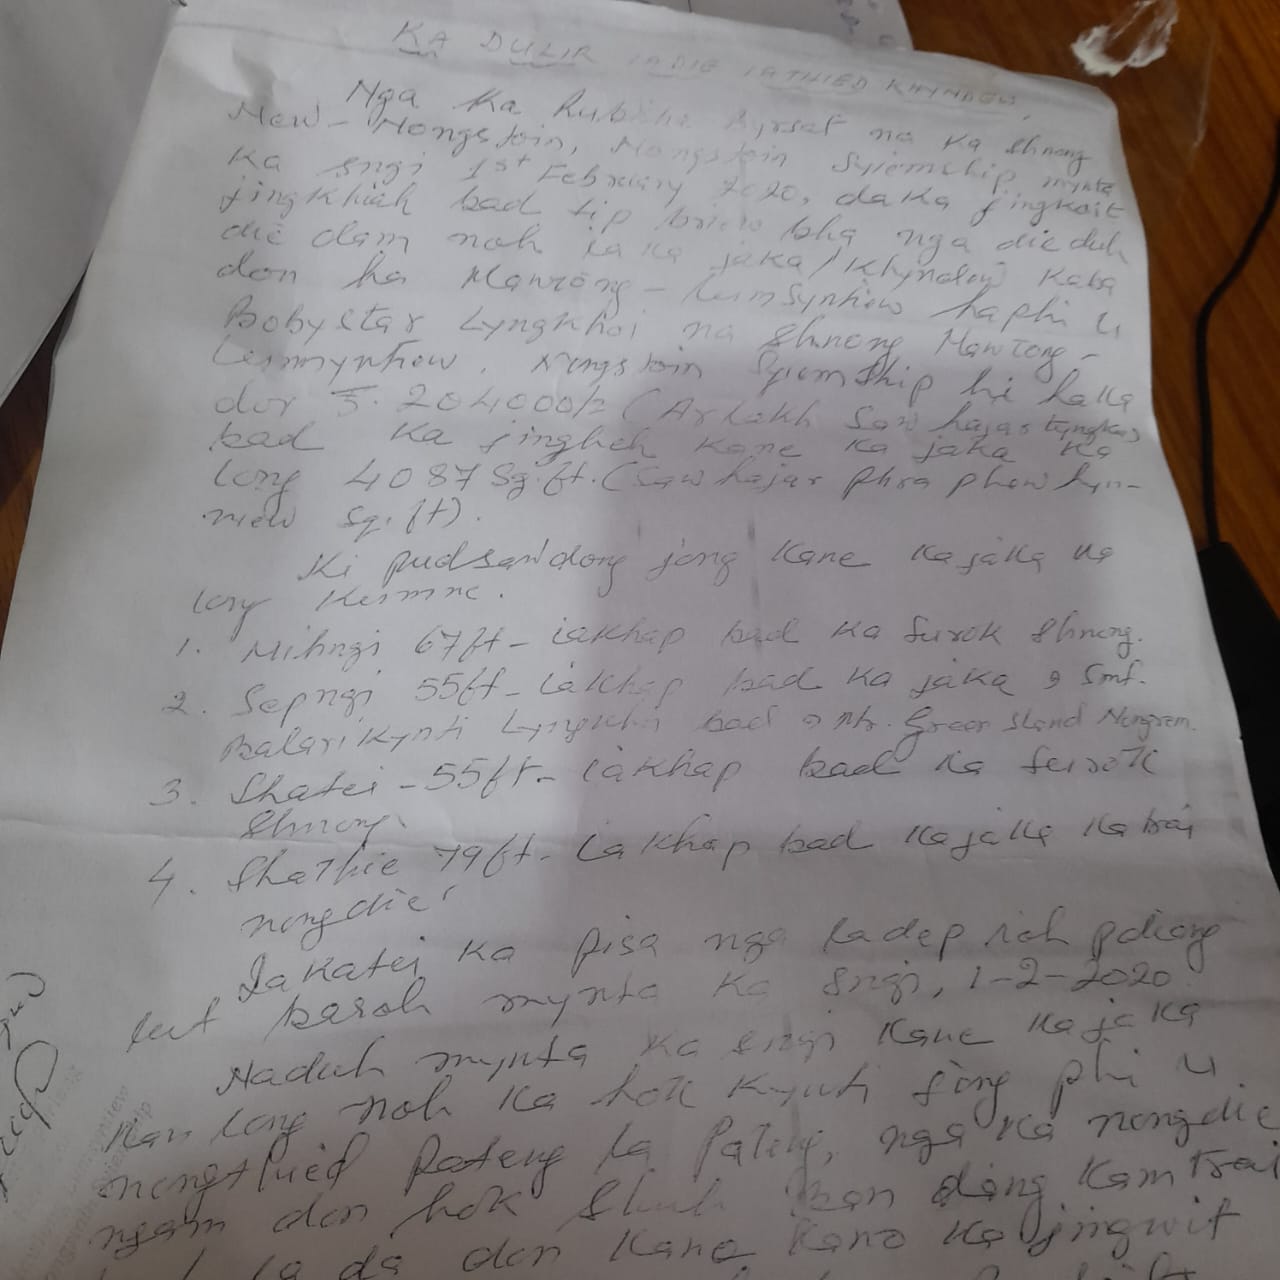 KA DULIR IADIE IATHIED KHYNDEW.
Nga Ka Rubina Syrset na Ka Shnong
New-Nongstoin, Nongstoin Syiemship mynta
Ka sngi 1st February 2020, da Ka jingkoit
jingkhiah bad tip briew bha nga die duh
die dam noh ia Ka jaka/Khyndew Kaba
don ha Mawrong - Lumsyntiew ha phi u
Bobystar Lyngkhoi na Shnong Mawrong -
Lumsyntiew. Nongstoin Syiemship hi ha Ka
dor 204000/= (Ar lakh Saw hajar tyngka)
bad Ka jingheh Kane Ka jaka Ka
long 4087 Sq.ft. (Saw hajar phra phew hyn-
niew Sq.ft).
Ki pud sawdong jong Kane Ka jaka Ka
long Kumne.
1. Mihngi 67ft - iakhap bad Ka Surok Shnong.
2. Sepngi 55ft - iakhap bad Ka jaka Smt.
Balarikynti Lyngkhoi bad Mr. Green Stand Nongrem.
3. Shatei - 55ft - iakhap bad Ka Surok
Shnong.
4. Shathie 79ft - iakhap bad Ka jaka Ka trai
nongdie.
Ia Katei Ka pisa nga la dep ioh pdiang
lut baroh mynta Ka Sngi, 1-2-2020
Naduh mynta Ka sngi Kane Ka jaka
Kan long noh Ka hok Kynti jong phi u
nongthied Pateng la Pateng, nga Ka nongdie
ngam don hok Shuh ban dang Kam trai
la da don Kano Kano Ka jingwit